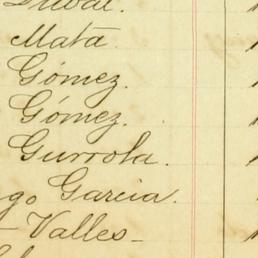 Duval.
Mata.
Gómez.
Gómez.
Gurrola.
go Garcia.
- Valles -